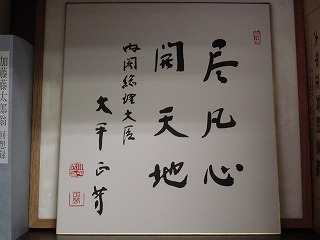 尽凡心
開天地
内閣総理大臣
大平正芳
加藤藤太郎翁 回想録